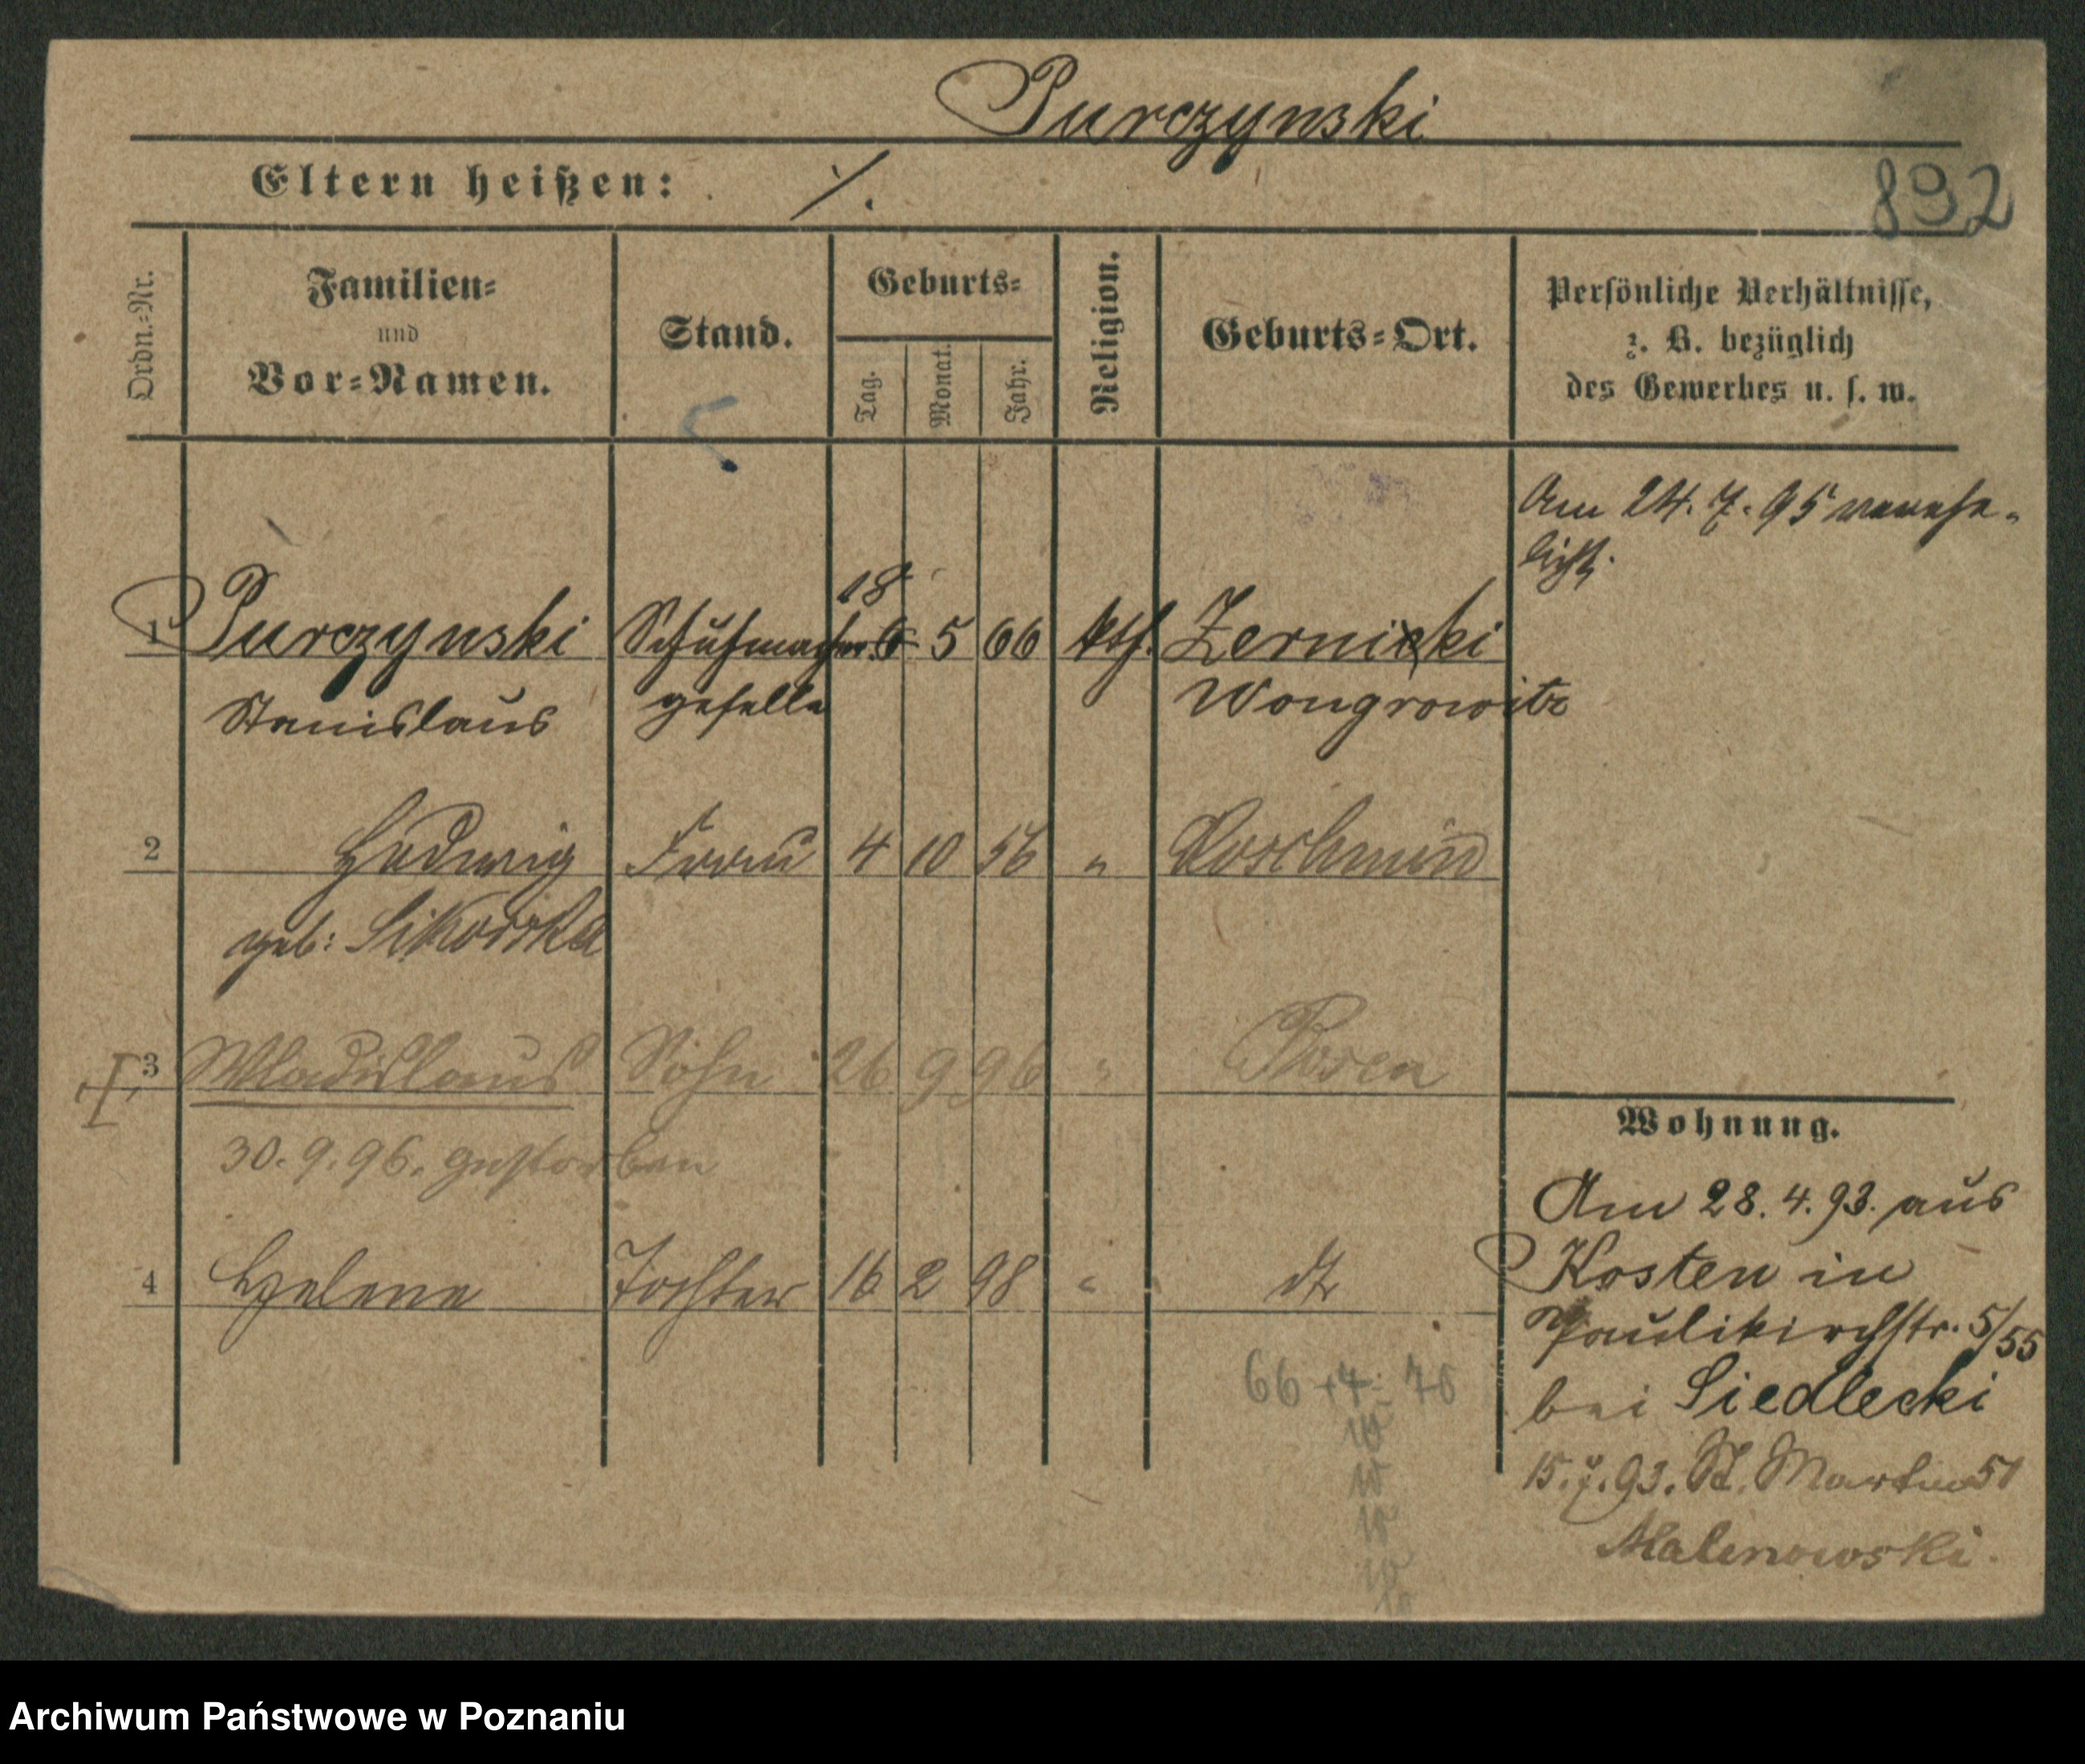 Purczynski
Eltern heißen: ·/.
892
Ordn.-Nr.
Familien-
und
Vor-Namen.
Stand.
Geburts-
Tag.
Monat.
Jahr.
Religion.
Geburts-Ort.
Persönliche Verhältnisse,
z. B. bezüglich
des Gewerbes u. s. w.
Am 24. 7. 95 verehe-
licht.
18
1 Purczynski Schuhmacher 6 5 66 kth. Zernicki
Stanislaus geselle Wongrowitz
2 Hedwig Frau 4 10 56 " Koschmin
geb: Sikorska
3 Wladislaus Sohn 26 9 96 " Posen
30. 9. 96. gestorben
4 Helene Tochter 16 2 98 " dto
66 + 4 = 70
10
10
10
10
Wohnung.
Am 28. 4. 93. aus
Kosten in
Paulikirchstr. 5/55
bei Siedlecki
15. 7. 93. St. Martin 51
Malinowski.
Archiwum Państwowe w Poznaniu